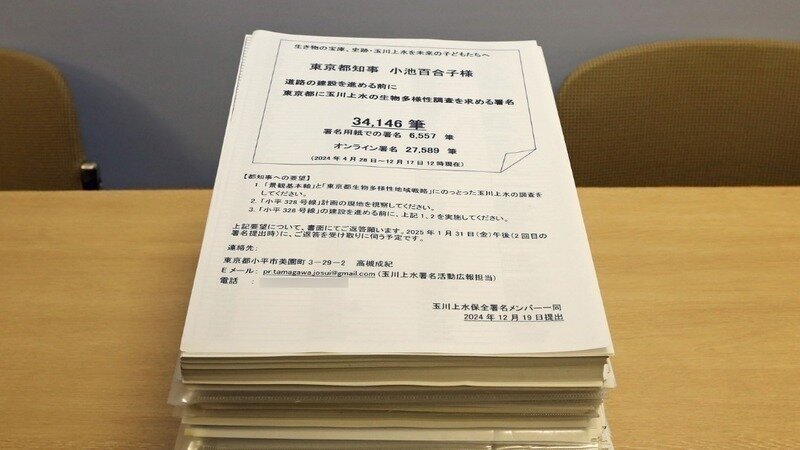 生き物の宝庫、史跡・玉川上水を未来の子どもたちへ
東京都知事 小池百合子様
道路の建設を進める前に
東京都に玉川上水の生物多様性調査を求める署名
34,146 筆
署名用紙での署名 6,557 筆
オンライン署名 27,589 筆
(2024年4月28日～12月17日12時現在)
【都知事への要望】
1.「景観基本軸」と「東京都生物多様性地域戦略」にのっとった玉川上水の調査を
してください。
2.「小平328号線」計画の現地を視察してください。
3.「小平328号線」の建設を進める前に、上記1、2を実施してください。
上記要望について、書面にてご返答願います。2025年1月31日(金)午後(2回目の
署名提出時)に、ご返答を受け取りに伺う予定です。
連絡先:
東京都小平市美園町3-29-2 高槻成紀
Eメール: pr.tamagawa.josui@gmail.com (玉川上水署名活動広報担当)
電話 :
玉川上水保全署名メンバー一同
2024年12月19日提出